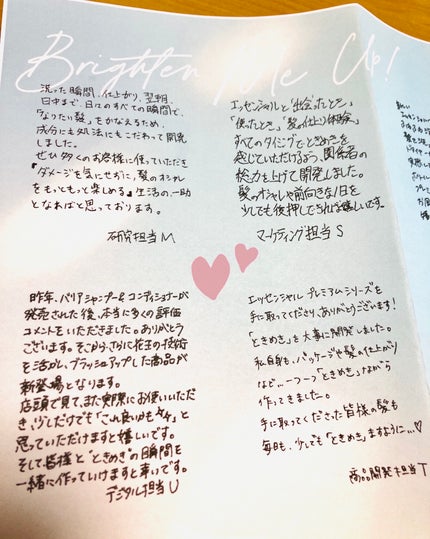 Brighten Me Up!
洗った瞬間、仕上がり、翌朝、
日中まで、日々のすべての瞬間で、
「なりたい髪」をかなえるため、
成分にも処法にもこだわって開発
しました。
ぜひ多くのお客様に使っていただき
『ダメージを気にせずに、髪のオシャレ
をもっともっと楽しめる』生活の一助
となればと思っております。
研究担当 M
エッセンシャルと「出会ったとき」
「使ったとき」「髪の仕上り体験」
すべてのタイミングでときめきを
感じていただけるよう、関係者の
総力を上げて開発しました。
髪のオシャレや前向きな1日を
少しでも後押しできれば嬉しいです。
マーケティング担当 S
昨年、バリアシャンプー&コンディショナーが
発売された後、本当に多くの評価
コメントをいただきました。ありがとう
ございます。そこから、さらに花王の技術
を活かし、ブラッシュアップした商品が
新登場となります。
店頭で見て、また実際にお使いいただ
き、少しだけでも"これ良いかも"と
思っていただけますと嬉しいです。
そして皆様と"ときめき"の瞬間を
一緒に作っていけますと幸いです。
デジタル担当 U
エッセンシャル プレミアムシリーズを
手に取ってくださり、ありがとうございます!
「ときめき」を大事に開発しました。
私自身も、パッケージや髪の仕上がり
など、一つ一つ「ときめき」ながら
作ってきました。
手に取ってくださった皆様の髪も
毎日、少しでも「ときめき」ますように…♡
商品開発担当 T